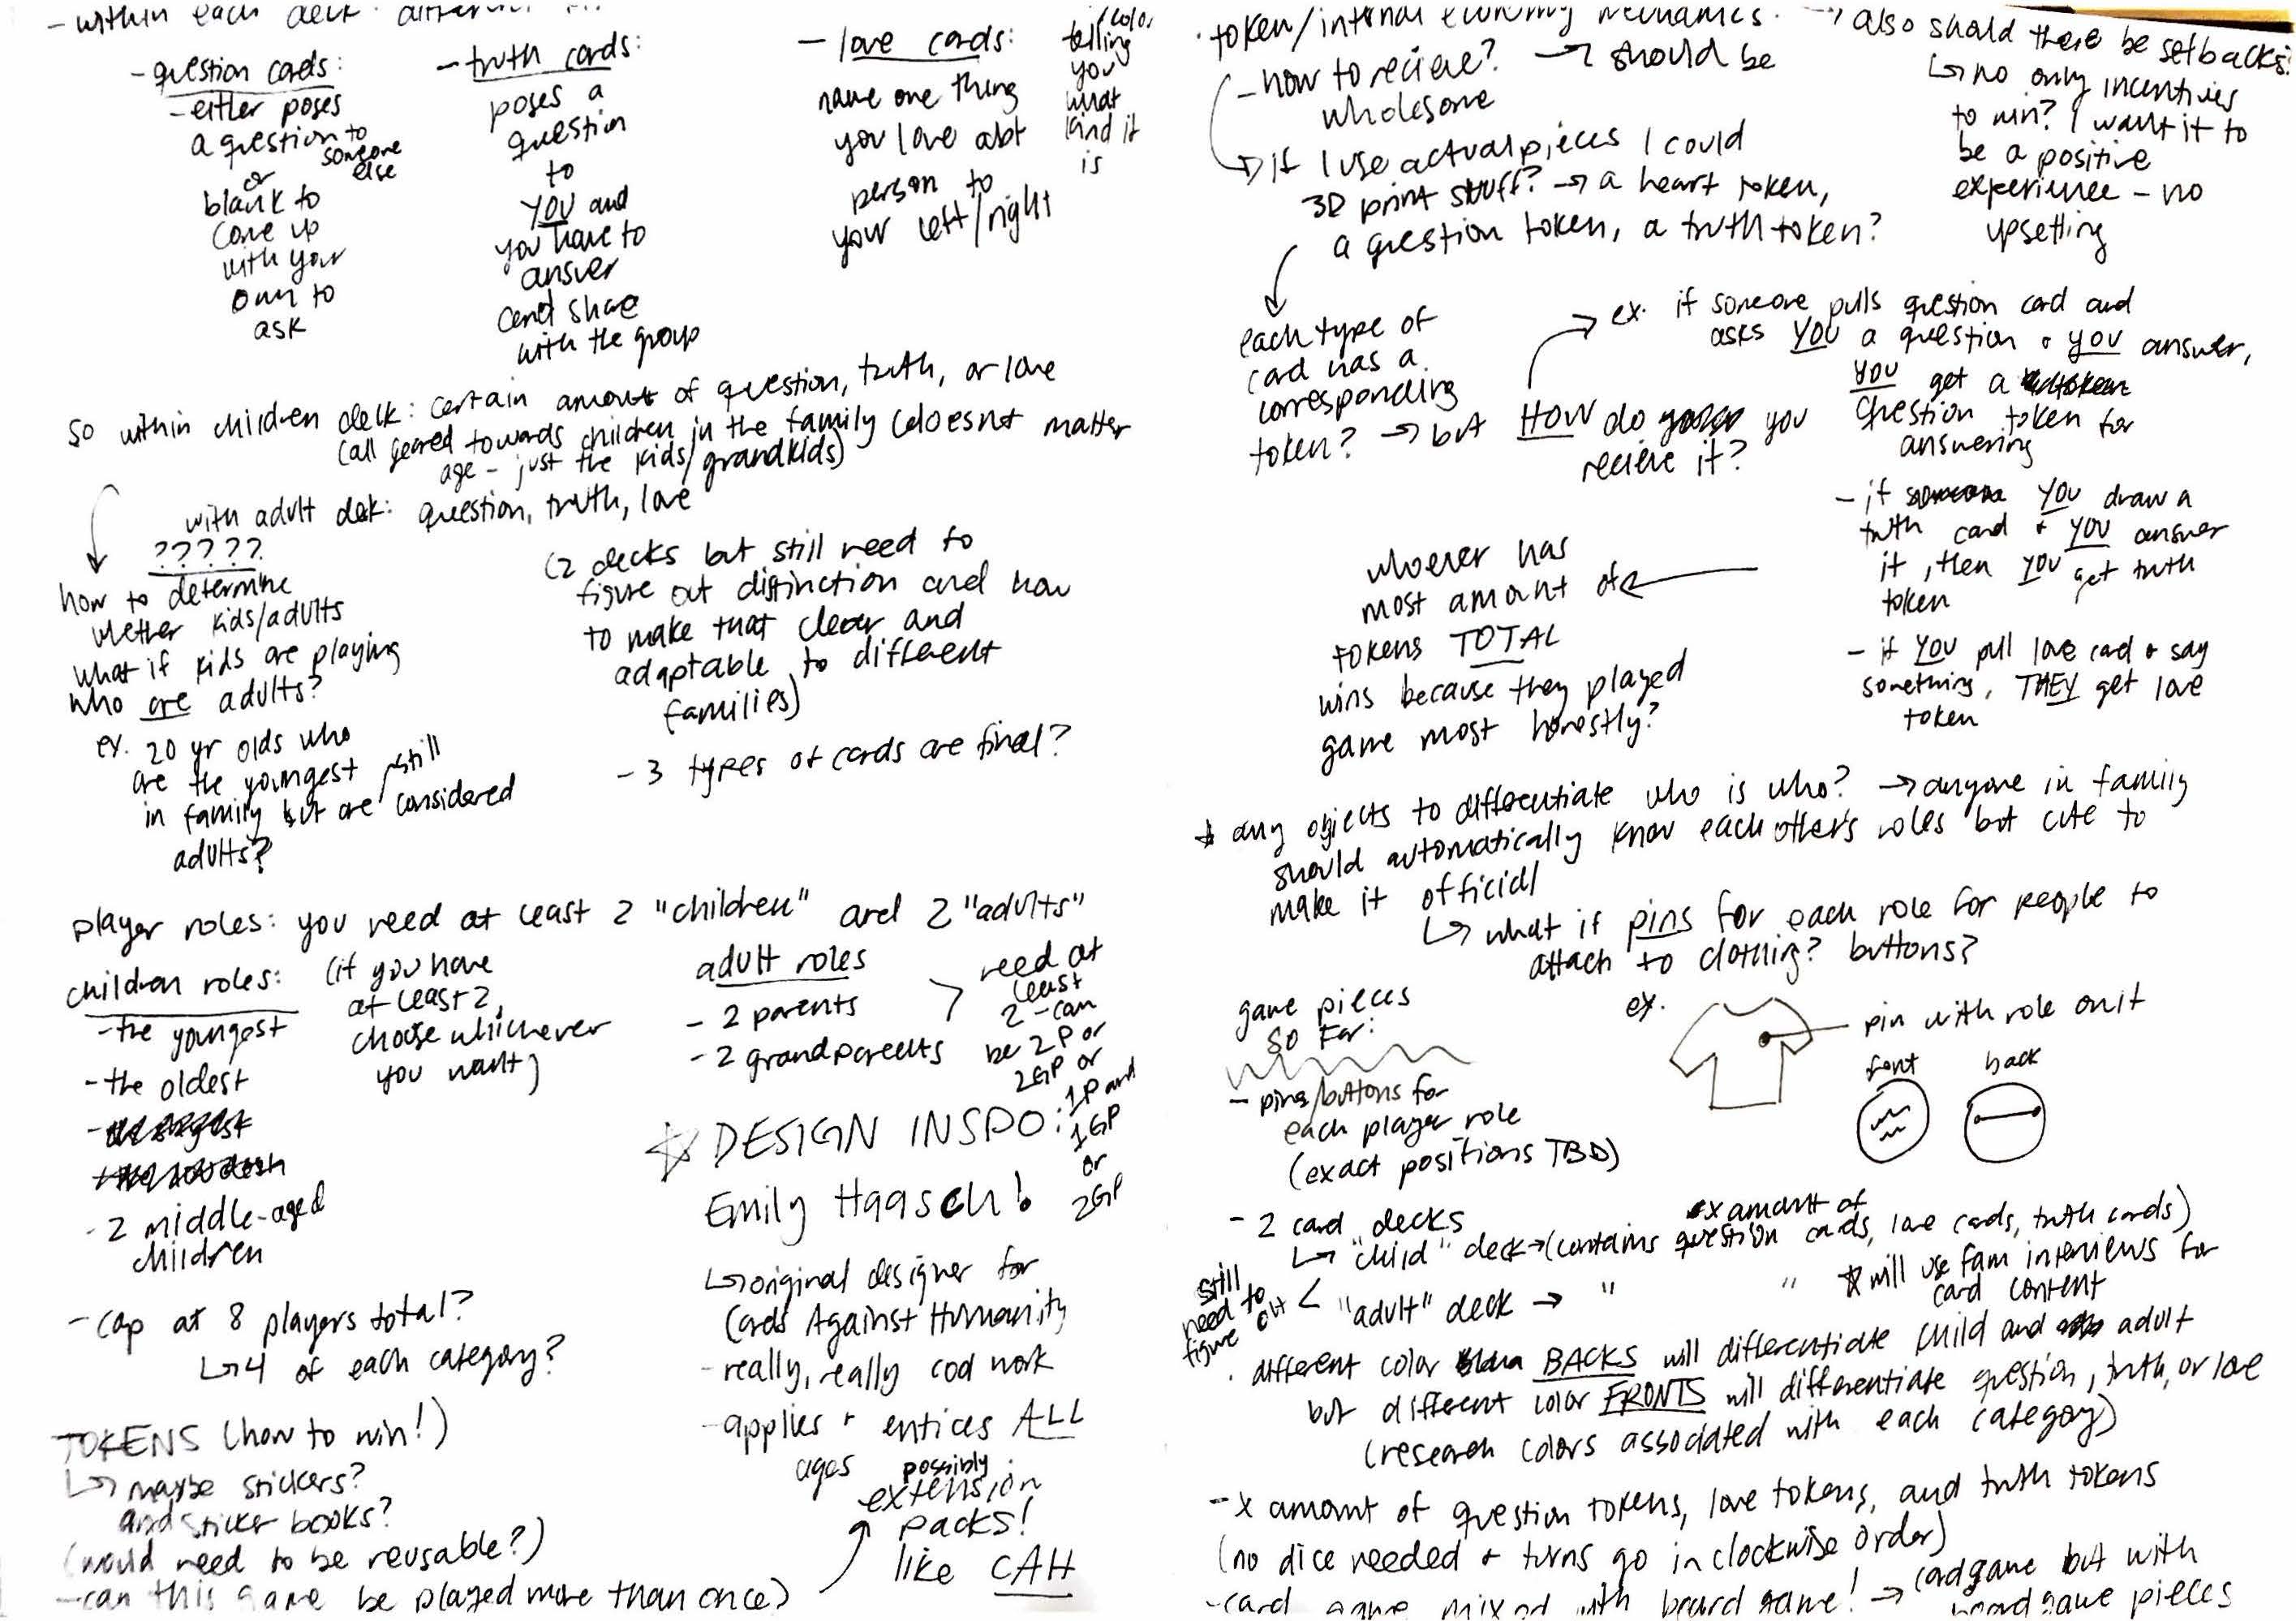 - within each deck: different
- question cards:
- either poses
a question to
someone
else
or
blank to
come up
with your
own to
ask
- truth cards:
poses a
question
to
YOU and
you have to
answer
and share
with the group
- love cards:
name one thing
you love abt
person to
your left/right
telling
you
what
kind it
is
so within children deck: certain amount of question, truth, or love
(all geared towards children in the family (doesnt matter
age - just the kids/grandkids)
with adult deck: question, truth, love
?????
how to determine
whether kids/adults
what if kids are playing
who are adults?
ex. 20 yr olds who
are the youngest
in family but are still considered
adults?
(2 decks but still need to
figure out distinction and how
to make that clear and
adaptable to different
families)
- 3 types of cards are final?
player roles: you need at least 2 "children" and 2 "adults"
children roles:
- the youngest
- the oldest
- 2 middle-aged
children
(if you have
at least 2,
choose whichever
you want)
adult roles
- 2 parents
- 2 grandparents
need at
least
2 - can
be 2P or
2GP or
1P and
1GP
or
2GP
- cap at 8 players total?
↳ 4 of each category?
TOKENS (how to win!)
↳ maybe stickers?
and sticker books?
(would need to be reusable?)
- can this game be played more than once)
☆ DESIGN INSPO:
Emily Haasch!
↳ original designer for
Cards Against Humanity
- really, really cool work
- applies + entices ALL
ages
possibly
extension
packs!
like CAH
· token/internal economy mechanics.
- how to recieve? → should be
wholesome
→ if I use actual pieces I could
3D print stuff? → a heart token,
a question token, a truth token?
→ also should there be setbacks?
↳ no only incentives
to win? I want it to
be a positive
experience - no
upsetting
each type of
card has a
corresponding
token? → but HOW do you
recieve it?
→ ex. if someone pulls question card and
asks YOU a question + you answer,
YOU get a
question token for
answering
- if YOU draw a
truth card + YOU answer
it, then YOU get truth
token
- if YOU pull love card + say
something, THEY get love
token
whoever has
most amount of ←
tokens TOTAL
wins because they played
game most honestly?
* any objects to differentiate who is who? → anyone in family
should automatically know each other's roles but cute to
make it official
↳ what if pins for each role for people to
attach to clothing? buttons?
ex.
pin with role on it
front
back
game pieces
so far:
- pins/buttons for
each player role
(exact positions TBD)
- 2 card decks
↳ "child" deck → (contains x amount of question cards, love cards, truth cards)
still
need to
figure out < "adult" deck → " "
☆ will use fam interviews for
card content
· different color BACKS will differentiate child and adult
but different color FRONTS will differentiate question, truth, or love
(research colors associated with each category)
- x amount of question tokens, love tokens, and truth tokens
(no dice needed + turns go in clockwise order)
- card game mixed with board game! → card game but with
board game pieces